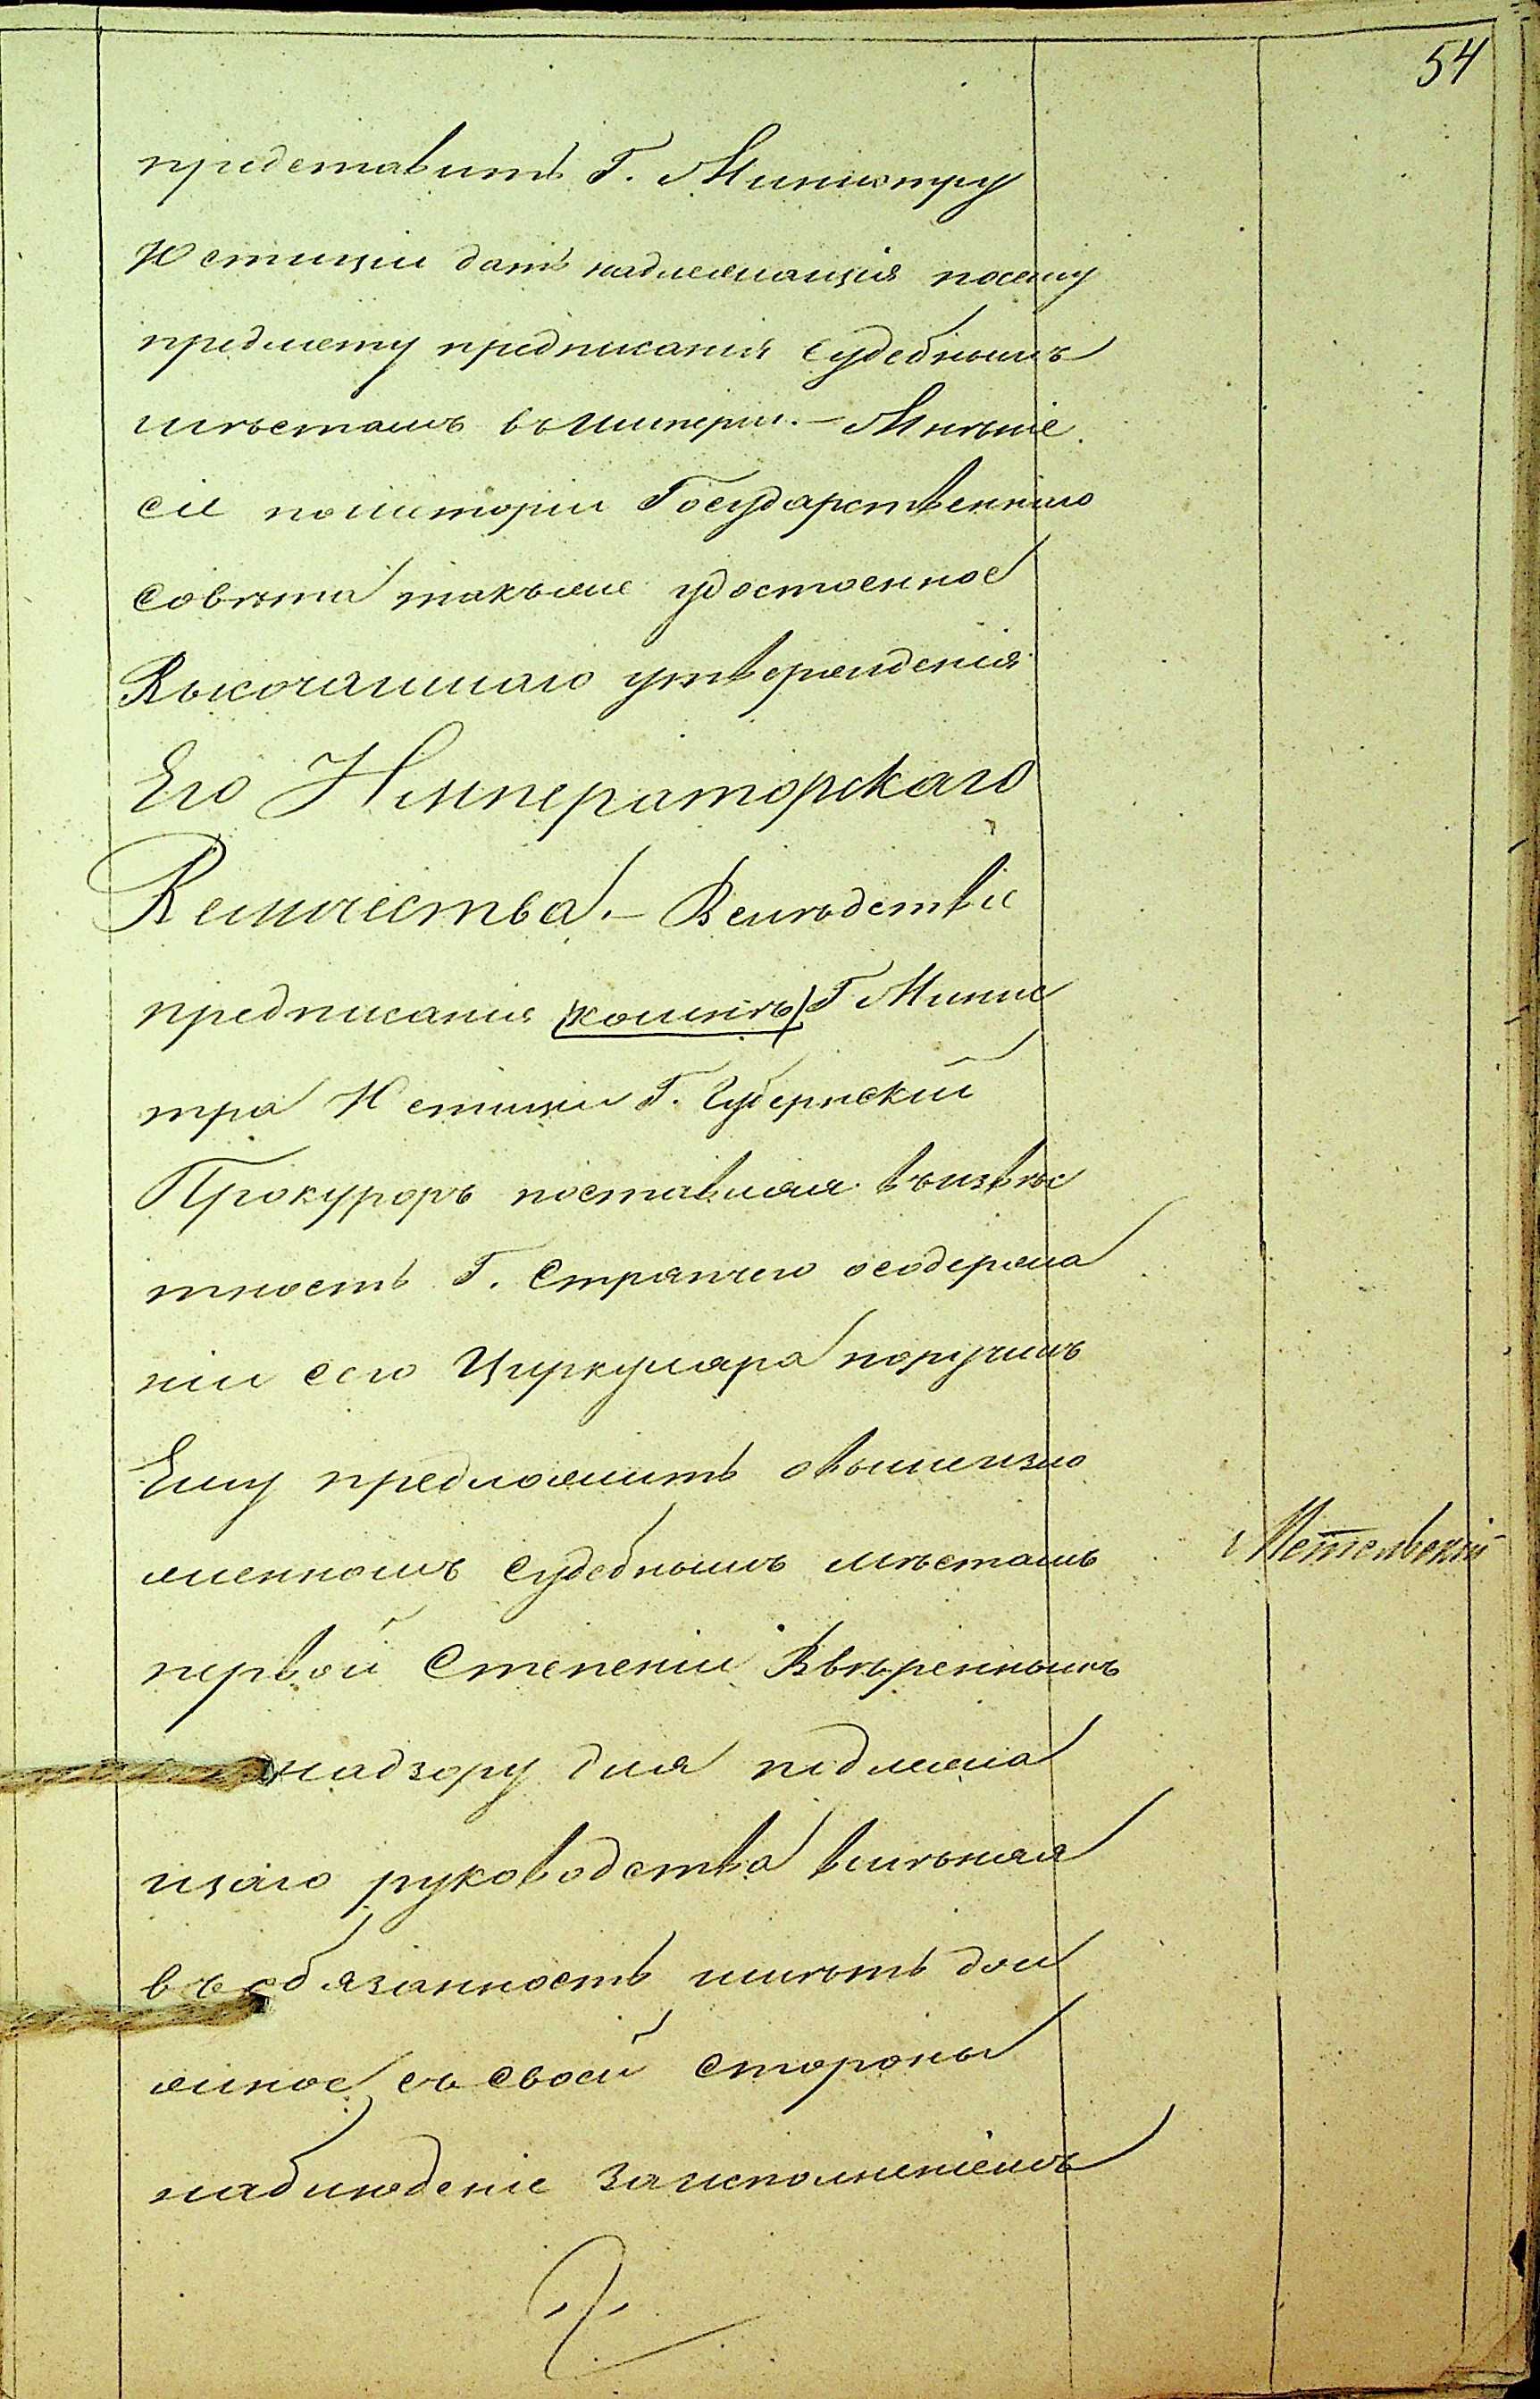 54
представить Г. Министру
Юстиціи дать надлежащія посему
предмету предписанія Судебнымъ
мѣстамъ въ Имперіи. – Мнѣніе
сіе поистории Государственнаго
Совѣта такъже удостоенное
Высочайшаго утвержденія
Его Императорскаго
Величества. – Вслѣдствіе
предписанія Г Минис
тра Юстиціи Г. Губернскій
Прокуроръ поставляя въ извѣс
тность Г. Стряпчего осодержа
ніи сего Циркуляра поручилъ
Ему предложить овышеизло
женномъ Судебнымъ мѣстамъ
первой Степеніи Ввѣреннымъ
надзору для надлежа
щаго руководства вмѣняя
въ обязанность имѣть дол
жное съ своей Стороны
наблюденіе за исполненіемъ